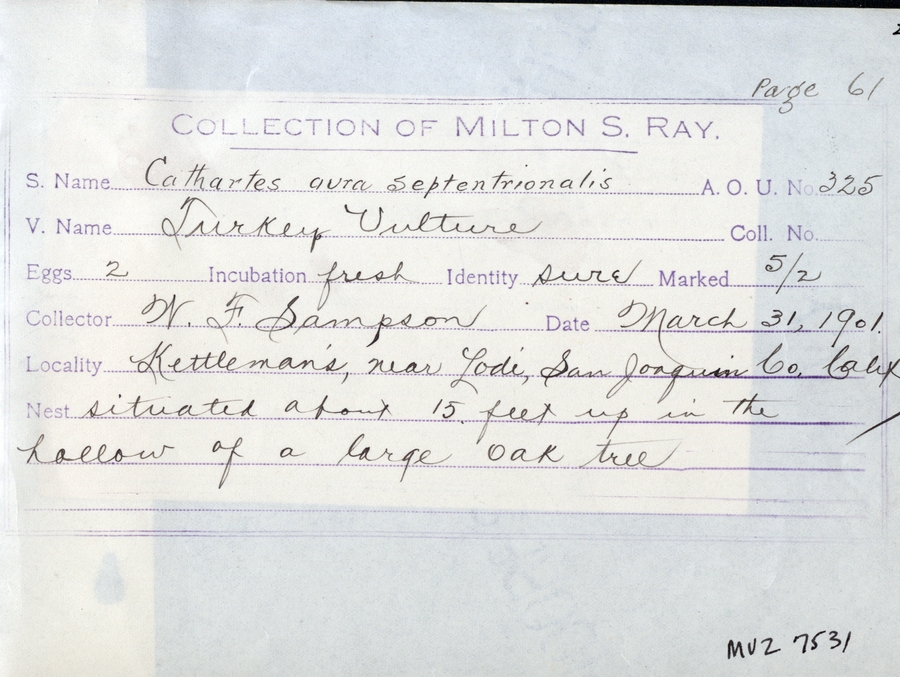 Page 61
COLLECTION OF MILTON S. RAY.
S. Name Cathartes aura septentrionalis A. O. U. No. 325
V. Name Turkey Vulture Coll. No.
Eggs 2 Incubation fresh Identity sure Marked 5/2
Collector W. F. Sampson Date March 31, 1901.
Locality Kettleman's, near Lodi, San Joaquin Co, Calif
Nest situated about 15 feet up in the
hollow of a large oak tree
MVZ 7531